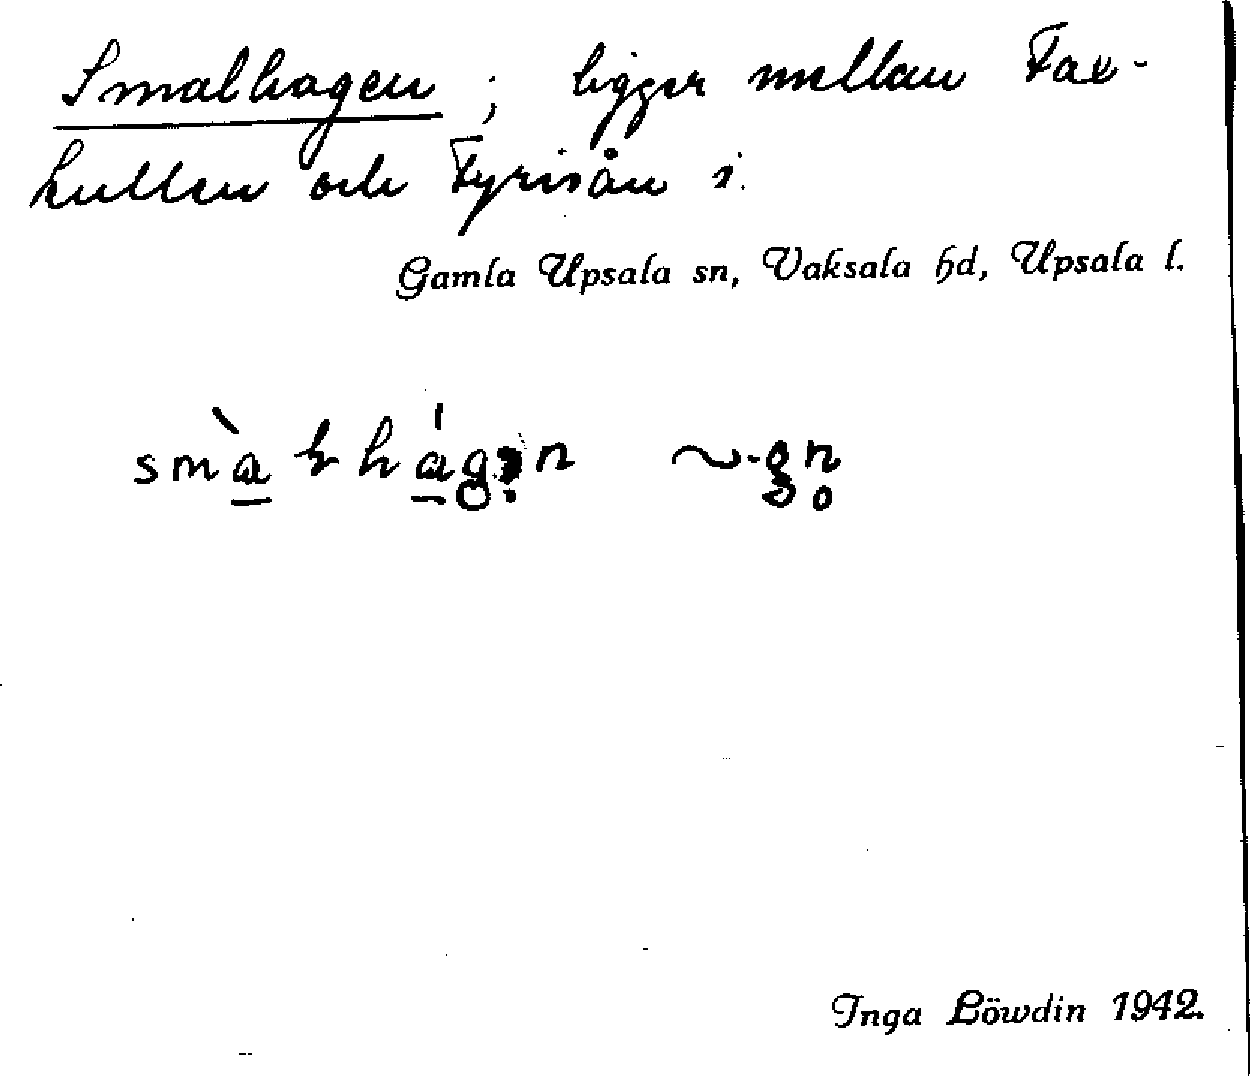 Smalhagen; ligger mellan Fax-
kullen och Fyrisån i.
Gamla Upsala sn, Vaksala hd, Upsala l.
Inga Löwdin 1942.